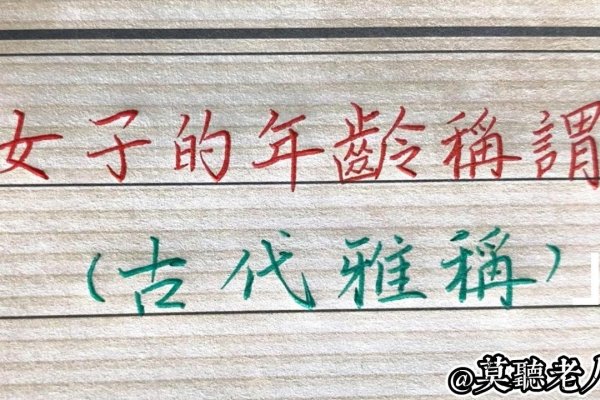 女子的年齡稱謂
(古代雅稱)
@莫聽老人